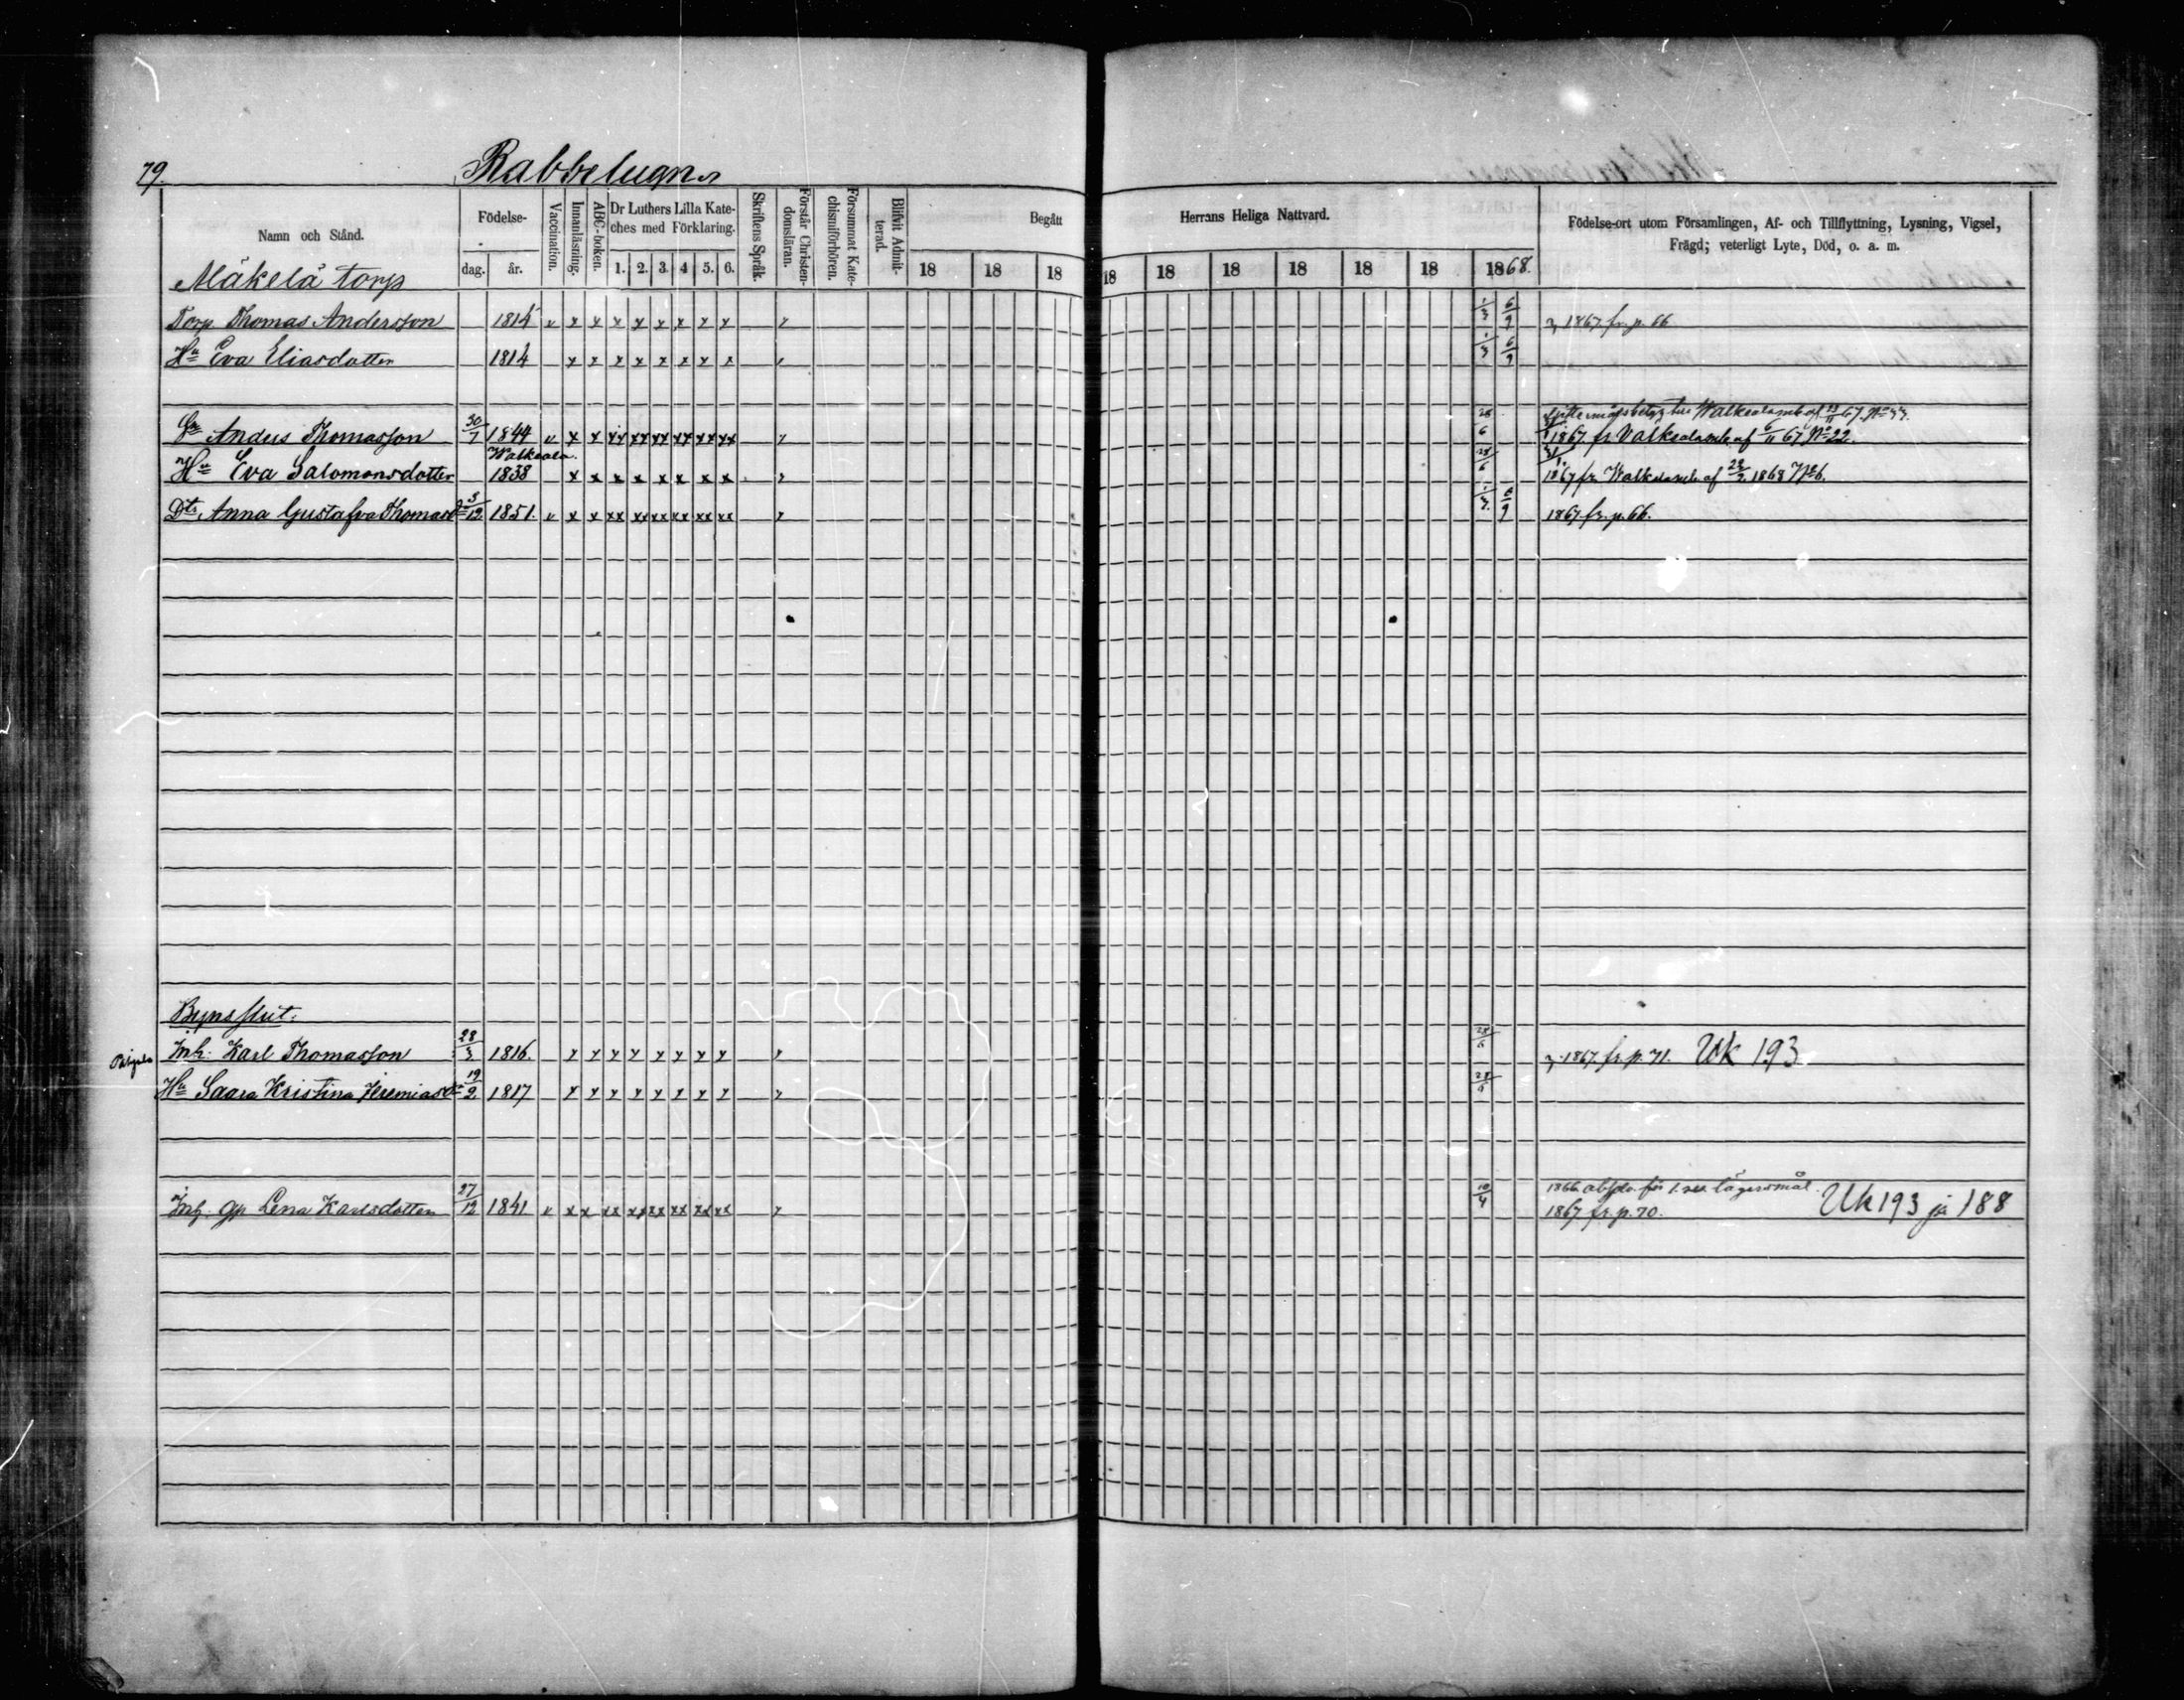 79.
Rabbelugn
Namn och Stånd.
Födelse-
dag.
år.
Vaccination.
Innanläsning.
ABC-boken.
Dr Luthers Lilla Kate-
ches med Förklaring.
1. 2. 3. 4 5. 6.
Skriftens Språk.
Förstår Christen-
domsläran.
Försummat Kate-
chismiförhören.
Blifvit Admit-
terad.
Begått Herrans Heliga Nattvard.
18 18 18 18 18 18 18 18 18 1868.
Födelse-ort utom Församlingen, Af- och Tillflyttning, Lysning, Vigsel,
Frägd; veterligt Lyte, Död, o. a. m.
Mäkelä torp
Torp Thomas Andersson 1814 v x x x x x x x x 1/3 6/9 1867. fr. p. 66
Hu Eva Eliasdotter 1814 x x x x x x x x 1/3 6/9
Walkeala
Anders Thomasson 30/7 1844 v x x xx xx xx xx xx xx 28/6 1867. fr. Valkeala af 6/11 67 No 22.
Walkeala.
Hu Eva Salomonsdotter 1838 x x x x x x x x 28/6 1867 fr. Walkeala af 1868 No 6.
Dtr. Anna Gustafva Thomasdr 3/12 1851. v x x xx xx xx xx xx xx 1/3 6/9 1867. fr. p. 66.
Byns slut:
Inh. Karl Thomasson 28/3 1816. x x x x x x x x 28/6 1867. fr. p. 71. Uk 193
Hu Saara Kristina Jeremiasdr 19/2 1817 x x x x x x x x 28/6
1866 för lägersmål.
Inh. Lena Karlsdotter 27/12 1841. v x x xx xx xx xx xx xx 10/4 1867 fr. p. 70. Uk 193 ja 188